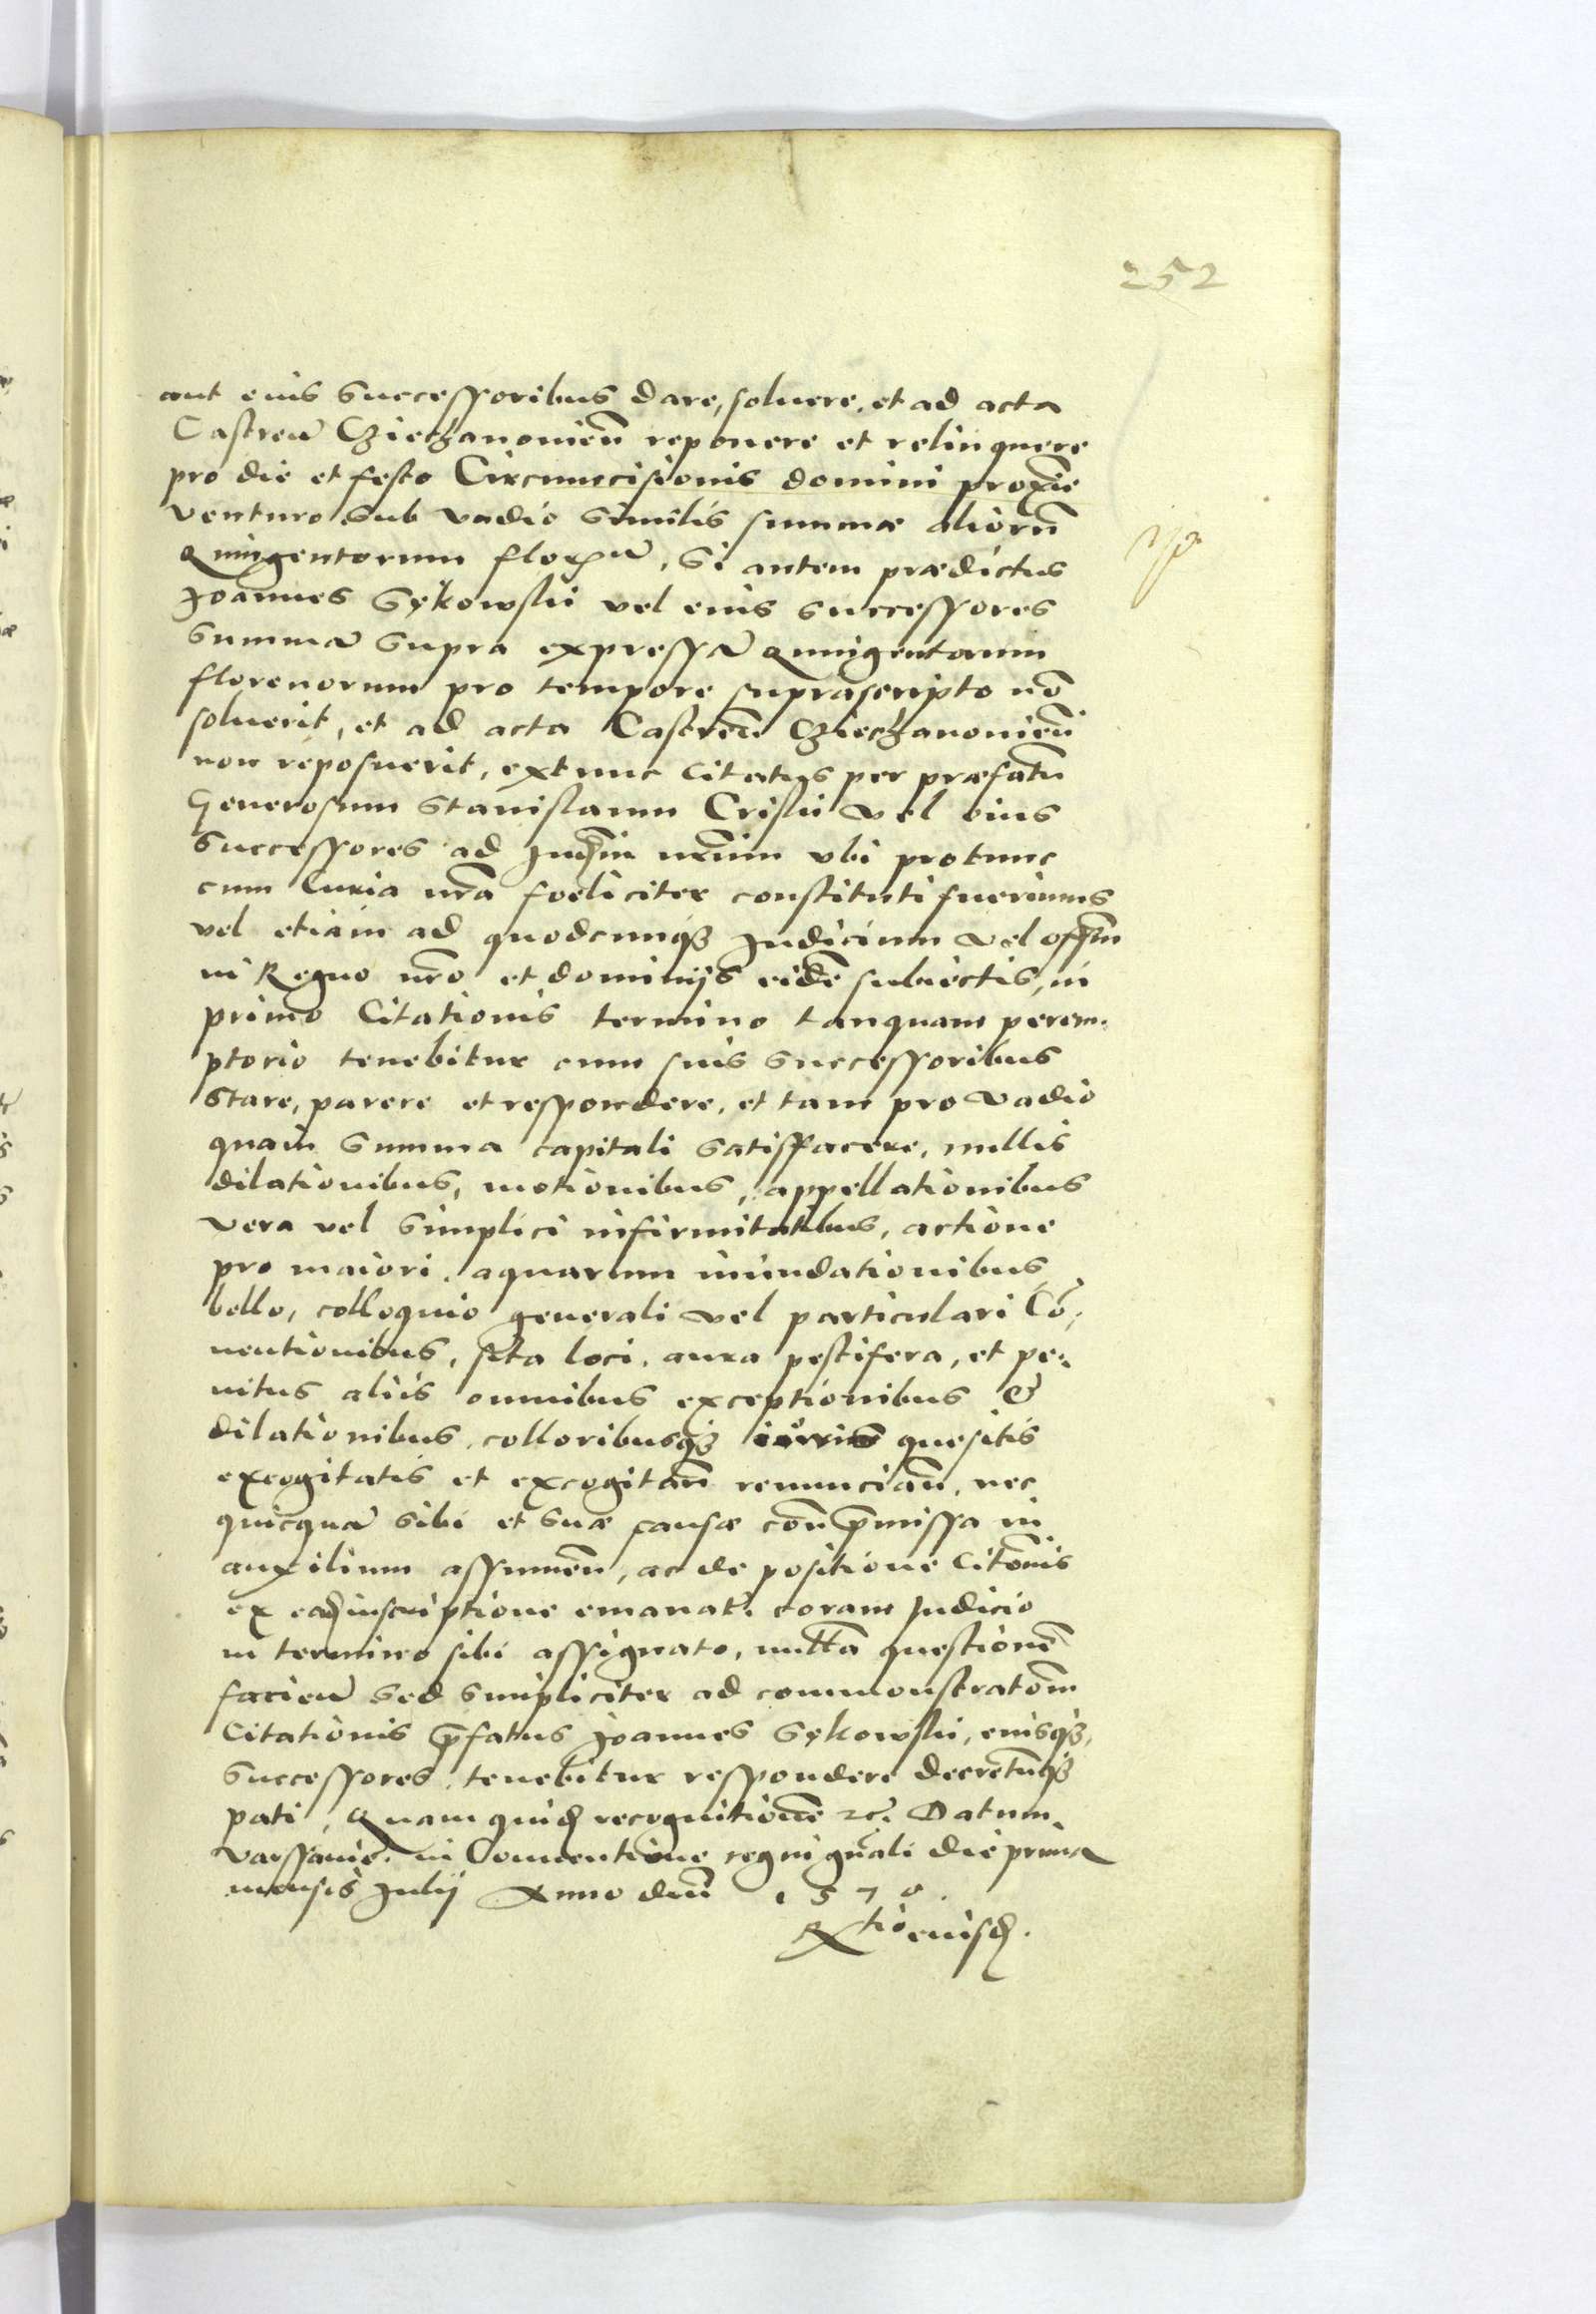 252
aut eius successoribus dare, soluere, et ad acta
Castreñ Cziechanonieñ reponere et relinquere
pro die et festo Circumcisionis domini proxie
venturo sub vadio similis summæ aliorũ
Quingentorum florũ, Si autem prædictus
Joannes Gykowski vel eius successores
summã supra expressã quingentorum
florenorum pro tempore suprascripto nõ
soluerit, et ad acta Castreñ Cziechanonieñ
non reposuerit, extunc citatus per præfatũ
Generosum Stanislaum Criski vel eius
successores ad Judm nrũm vbi protunc
cum Curia nrã foeliciter constituti fuerimus
vel etiam ad quodcunqȝ Judicium vel offm
in Regno nrõ et dominijs eidẽ subiectis, in
primo Citationis termino tanquam perem-
ptorio tenebitur cum suis successoribus
stare, parere et respondere, et tam pro vadio
quam summa capitali satisffacere, nullis
dilationibus, motionibus, appellationibus
vera vel simplici infirmitatibus, actione
pro maiori, aquarum inundationibus
bello, colloquio generali vel particulari Cõ-
uentionibus, sita loci, aura pestifera, et pe-
nitus aliis omnibus exceptionibus &
dilationibus, colloribusqȝ quesitis
excogitatis et excogitañ renunciañ, nec
quicquã sibi et suæ causæ coñ pmissa in
auxilium assumeñ, ac de positione Citõnis
ex ead inscriptione emanat. coram Judicio
in termino sibi assignato, nullã questionẽ
facieñ sed simpliciter ad commonstratõm
Citationis pfatus Joannes Gykowski, eiusqȝ
successores, tenebitur respondere decretũqȝ
pati, Quam quid recognitionẽ etc. Datum
Varssauiẽ. in Conuentione regni gñali die prima
mensis Julij Anno dnĩ 1570.
Rtio eiusd.